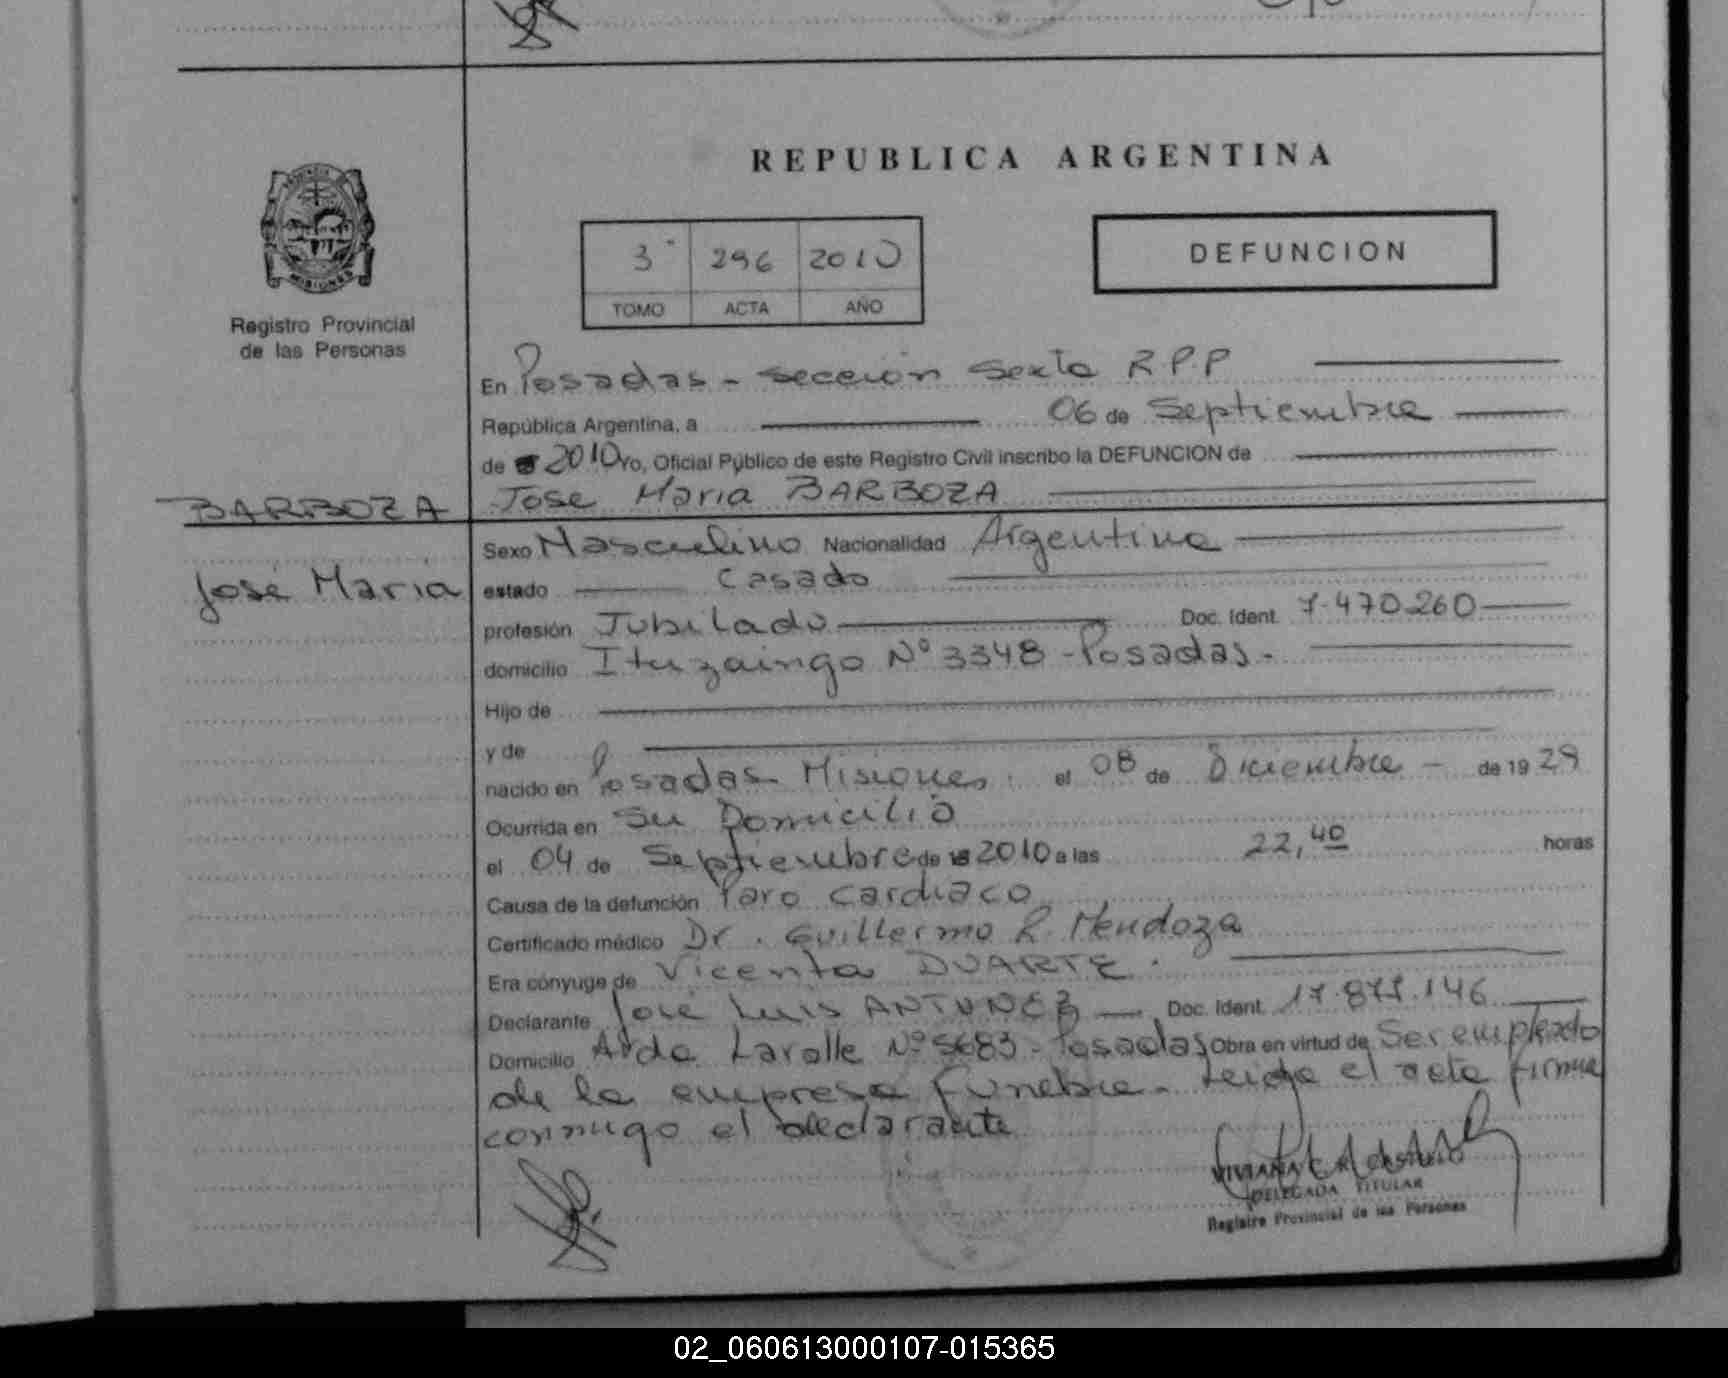 REPUBLICA ARGENTINA
PROVINCIA
MISIONES
Registro Provincial
de las Personas
3° 296 2010
TOMO ACTA AÑO
DEFUNCION
En Posadas - Sección Sexta R.P.P
República Argentina, a 06 de Septiembre
de 2010 Yo, Oficial Público de este Registro Civil inscribo la DEFUNCION de
Jose Maria BARBOZA
BARBOZA
José Maria
Sexo Masculino Nacionalidad Argentina
estado Casado
profesión Jubilado Doc. Ident. 7.470.260
domicilio Ituzaingo N° 3348 - Posadas.
Hijo de
y de
nacido en Posadas Misiones el 08 de Diciembre - de 19 29
Ocurrida en Su Domicilio
el 04 de Septiembre de 2010 a las 22,40 horas
Causa de la defunción Paro Cardiaco
Certificado médico Dr. Guillermo R. Mendoza
Era cónyuge de Vicenta DUARTE.
Declarante José Luis ANTUNEZ Doc. Ident. 17.871.146
Domicilio Avda Lavalle N° 5683 - Posadas Obra en virtud de Ser empleado
de la empresa funebre. Leida el acta firma
conmigo el declarante
VIVIANA
DELEGADA TITULAR
Registro Provincial de las Personas
02_060613000107-015365